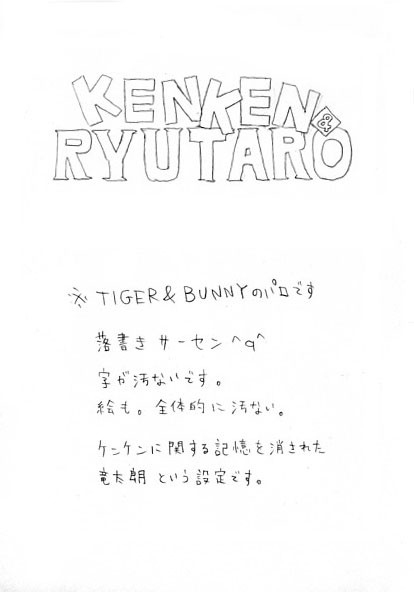 KENKEN
&
RYUTARO
※ TIGER & BUNNYのパロです
落書き サーセン ^q^
字が汚ないです。
絵も。全体的に汚ない。
ケンケンに関する記憶を消された
竜太朗 という設定です。